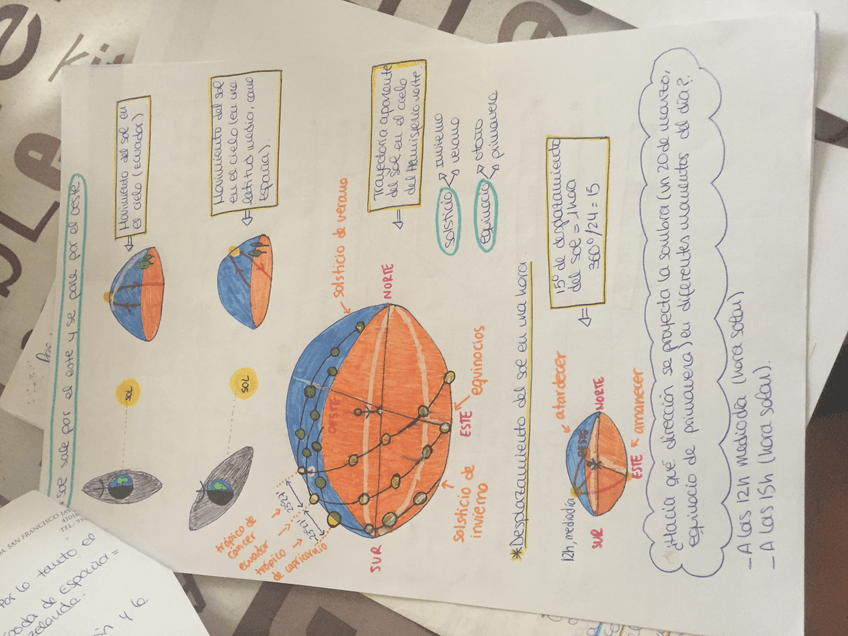 sol sale por el este y se pone por el oeste.
Movimiento del sol en
el cielo (ecuador)
SOL
Movimiento del sol
en el cielo (en una
latitud media, como
España).
SOL
Trayectoria aparente
del sol en el cielo
del Hemisferio norte
solsticio
invierno
verano
equinoccio
otoño
primavera
solsticio de verano
NORTE
OESTE
ESTE
equinocios
SUR
solsticio de
invierno
trópico de
cáncer
ecuador
trópico
de capricornio
23'5º
23'5º
*Desplazamiento del sol en una hora
15º de desplazamiento
del sol = 1 hora
360º/24 = 15
atardecer
12h, mediodía
OESTE
NORTE
SUR
ESTE
amanecer
¿Hacia qué dirección se proyecta la sombra (un 20 de marzo,
equinocio de primavera) en diferentes momentos del día?
- A las 12h mediodía (hora solar)
- A las 15h (hora solar).
SAN FRANCISCO
Por lo tanto el
de España =
zelanda.
y la